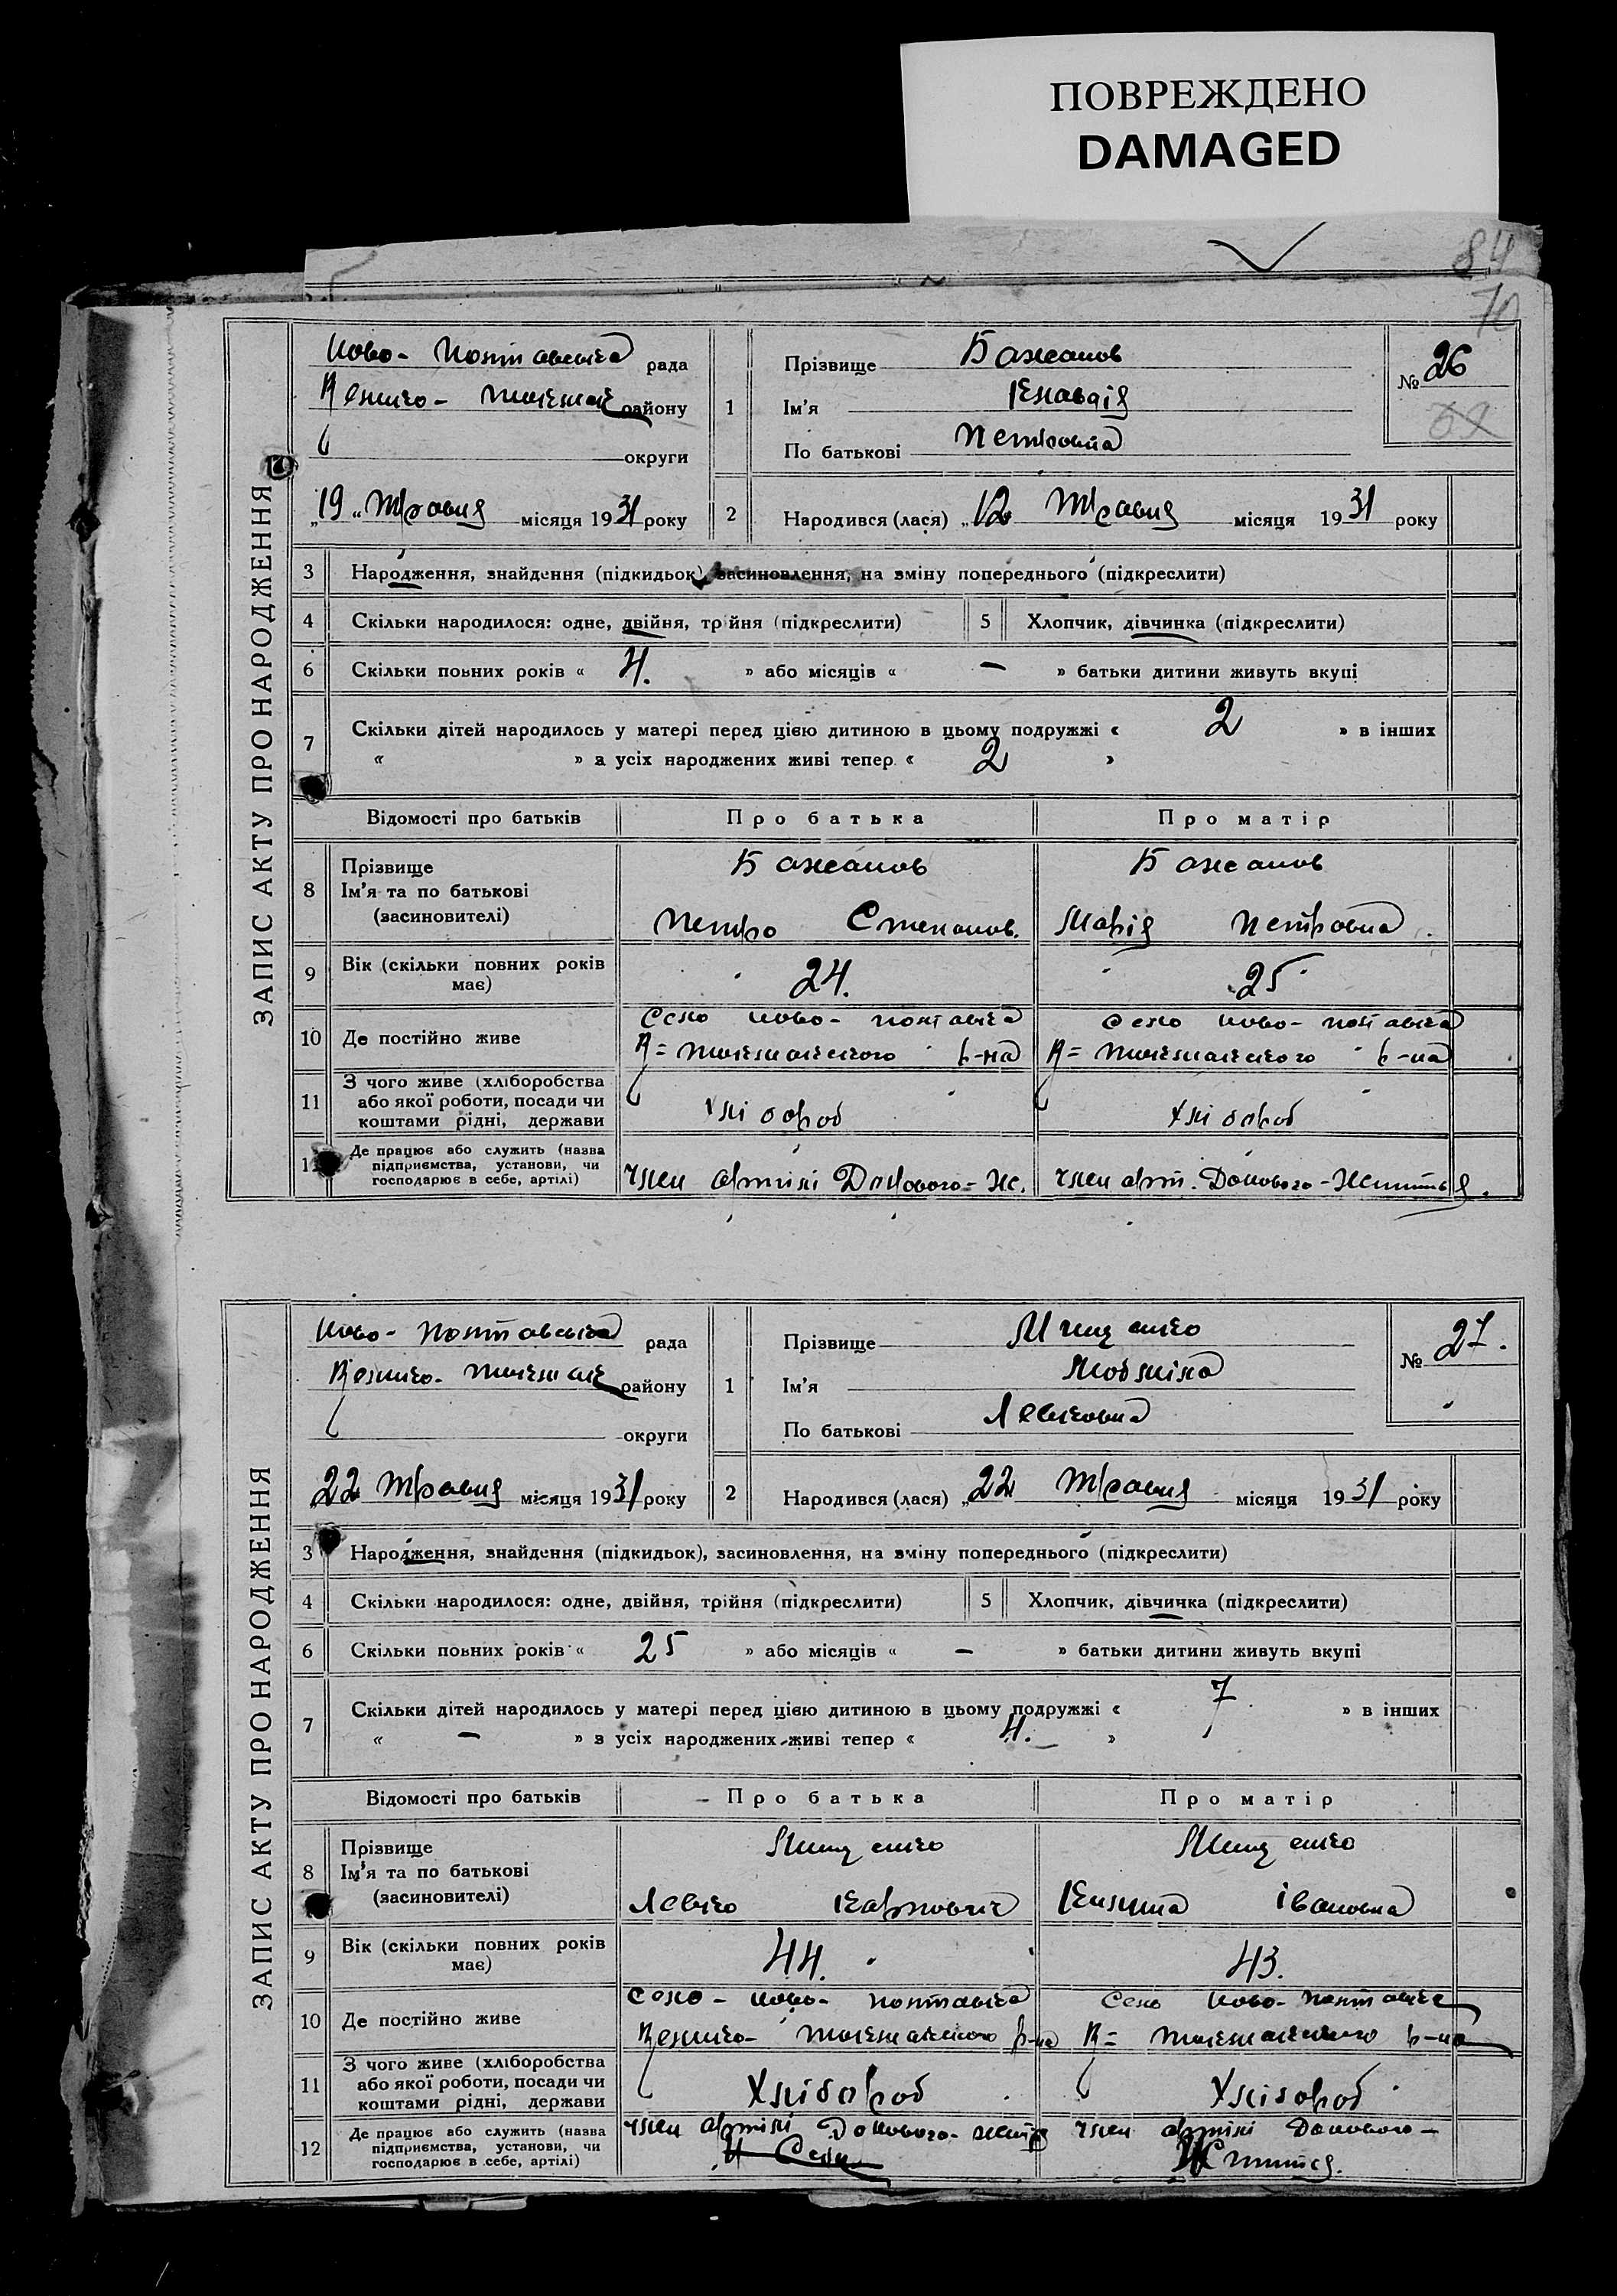 ПОВРЕЖДЕНО
DAMAGED
84
70
ЗАПИС АКТУ ПРО НАРОДЖЕННЯ
Ново- Полтавська рада
Велико- Токмак району
округи
„19„ Травня місяця 1931 року
1
Прізвище Бажанов
Ім'я Клавдія
По батькові Петровна
№ 26
2
Народився (лася) „12 Травня місяця 1931 року
3 Народження, знайдення (підкидьок), засиновлення, на зміну попереднього (підкреслити)
4 Скільки народилося: одне, двійня, трійня (підкреслити)
5 Хлопчик, дівчинка (підкреслити)
6 Скільки повних років « 4. » або місяців « – » батьки дитини живуть вкупі
7 Скільки дітей народилось у матері перед цією дитиною в цьому подружжі « 2 » в інших
« » з усіх народжених живі тепер « 2 »
Відомості про батьків Про батька Про матір
8 Прізвище
Ім'я та по батькові
(засиновителі)
Бажанов
Петро Степанов.
Бажанов
Марія Петровна.
9 Вік (скільки повних років
має)
24.
25
10 Де постійно живе
Село Ново- Полтавка
В= Токмакского р-на
Село Ново- Полтавка
В= Токмакского р-на
11 З чого живе (хліборобства
або якої роботи, посади чи
коштами рідні, держави
Хлібороб
Хлібороб
12 Де працює або служить (назва
підприємства, установи, чи
господарює в себе, артілі)
член артілі
член арт.
ЗАПИС АКТУ ПРО НАРОДЖЕННЯ
Ново- Полтавська рада
Велико- Токмак району
округи
„22 Травня місяця 1931 року
1
Прізвище
Ім'я
По батькові Левковна
№ 27.
2
Народився (лася) „22 Травня місяця 1931 року
3 Народження, знайдення (підкидьок), засиновлення, на зміну попереднього (підкреслити)
4 Скільки народилося: одне, двійня, трійня (підкреслити)
5 Хлопчик, дівчинка (підкреслити)
6 Скільки повних років « 25 » або місяців « – » батьки дитини живуть вкупі
7 Скільки дітей народилось у матері перед цією дитиною в цьому подружжі « 7 » в інших
« – » з усіх народжених живі тепер « 4. »
Відомості про батьків Про батька Про матір
8 Прізвище
Ім'я та по батькові
(засиновителі)
Левко Карпович
Івановна
9 Вік (скільки повних років
має)
44.
43.
10 Де постійно живе
Село- Ново- Полтавка
Велико- Токмакского р-на
Село Ново- Полтавка
В= Токмакского р-на
11 З чого живе (хліборобства
або якої роботи, посади чи
коштами рідні, держави
Хлібороб
Хлібороб
12 Де працює або служить (назва
підприємства, установи, чи
господарює в себе, артілі)
член артілі
член артілі